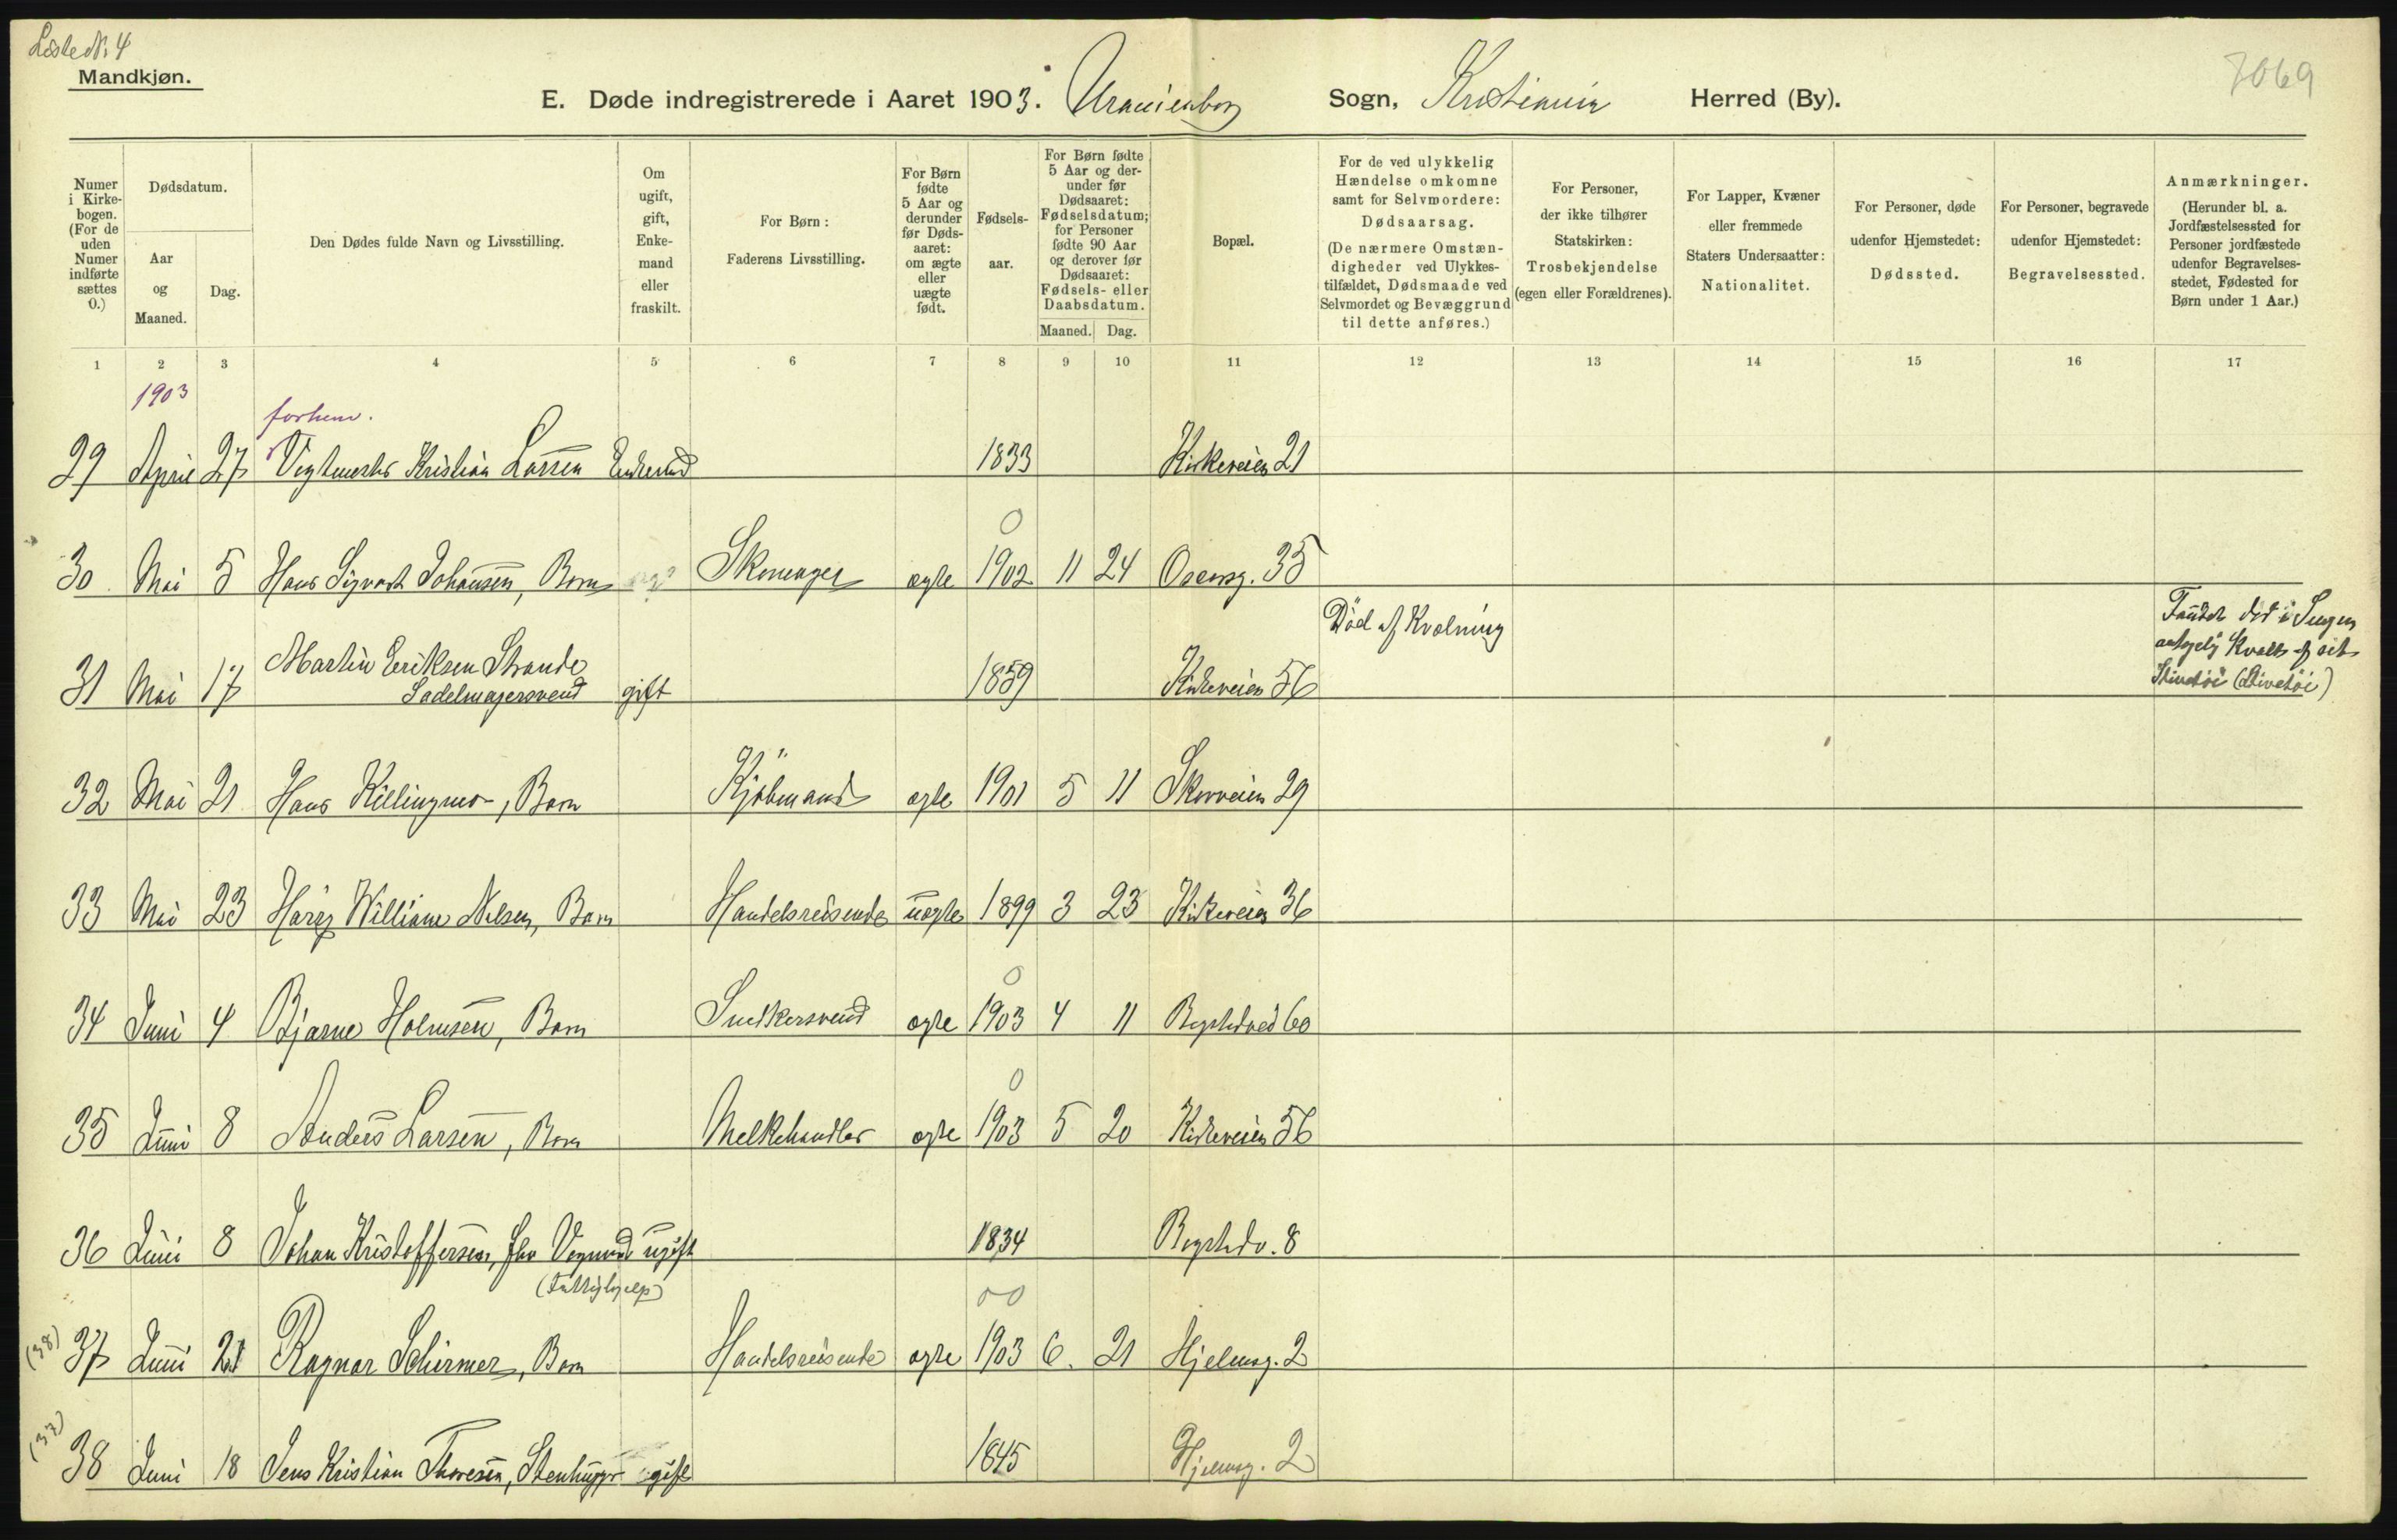 Liste Nr. 4
7069
Mandkjøn.
E. Døde indregistrerede i Aaret 1903. Uranienborg Sogn, Kristiania Herred (By).
Numer i Kirkebogen. (For de uden Numer indførte sættes 0.)
Dødsdatum.
Aar og Maaned.
Dag.
Den Dødes fulde Navn og Livsstilling.
Om ugift, gift, Enkemand eller fraskilt.
For Børn: Faderens Livsstilling.
For Børn fødte 5 Aar og derunder før Dødsaaret: om ægte eller uægte født.
Fødselsaar.
For Børn fødte 5 Aar og derunder før Dødsaaret: Fødselsdatum; for Personer fødte 90 Aar og derover før Dødsaaret: Fødsels- eller Daabsdatum.
Maaned. Dag.
Bopæl.
For de ved ulykkelig Hændelse omkomne samt for Selvmordere: Dødsaarsag. (De nærmere Omstændigheder ved Ulykkestilfældet, Dødsmaade ved Selvmordet og Bevæggrund til dette anføres.)
For Personer, der ikke tilhører Statskirken: Trosbekjendelse (egen eller Forældrenes).
For Lapper, Kvæner eller fremmede Staters Undersaatter: Nationalitet.
For Personer, døde udenfor Hjemstedet: Dødssted.
For Personer, begravede udenfor Hjemstedet: Begravelsessted.
Anmærkninger. (Herunder bl. a. Jordfæstelsessted for Personer jordfæstede udenfor Begravelsesstedet, Fødested for Børn under 1 Aar.)
1 2 3 4 5 6 7 8 9 10 11 12 13 14 15 16 17
1903
forhenv.
29 April 27 Vegtmester Kristian Larsen Enkemd 1833 Kirkeveien 21
0
30 Mai 5 Hans Sigvart Johansen, Barn Skomager ægte 1902 11 24 Oscarsg. 35
Død af Kvælning
Fundet død i Sengen
antagelig kvalt af sit
Martin Eriksen Strande
31 Mai 17 Sadelmagersvend gift 1859 Kirkeveien 56 (Stivetøi)
32 Mai 21 Hans Killingmo, Barn Kjøbmand ægte 1901 5 11 Skovveien 29
33 Mai 23 Harry William Nilsen, Barn Handelsreisende uægte 1899 3 23 Kirkeveien 36
0
34 Juni 4 Bjarne Holmsen, Barn Snedkersvend ægte 1903 4 11 Bogstadvei 60
0
35 Juni 8 Anders Larsen, Barn Melkehandler ægte 1903 5 20 Kirkeveien 56
36 Juni 8 Johan Kristoffersen, fhv Vognmd ugift 1834 Bogstadv. 8
(Fattighjelp)
00
(38) 37 Juni 21 Ragnar Schirmer, Barn Handelsreisende ægte 1903 6. 21 Hjelmsg. 2
(37) 38 Juni 18 Jens Kristian Thoresen, Stenhugger gift 1845 Hjelmsg. 2